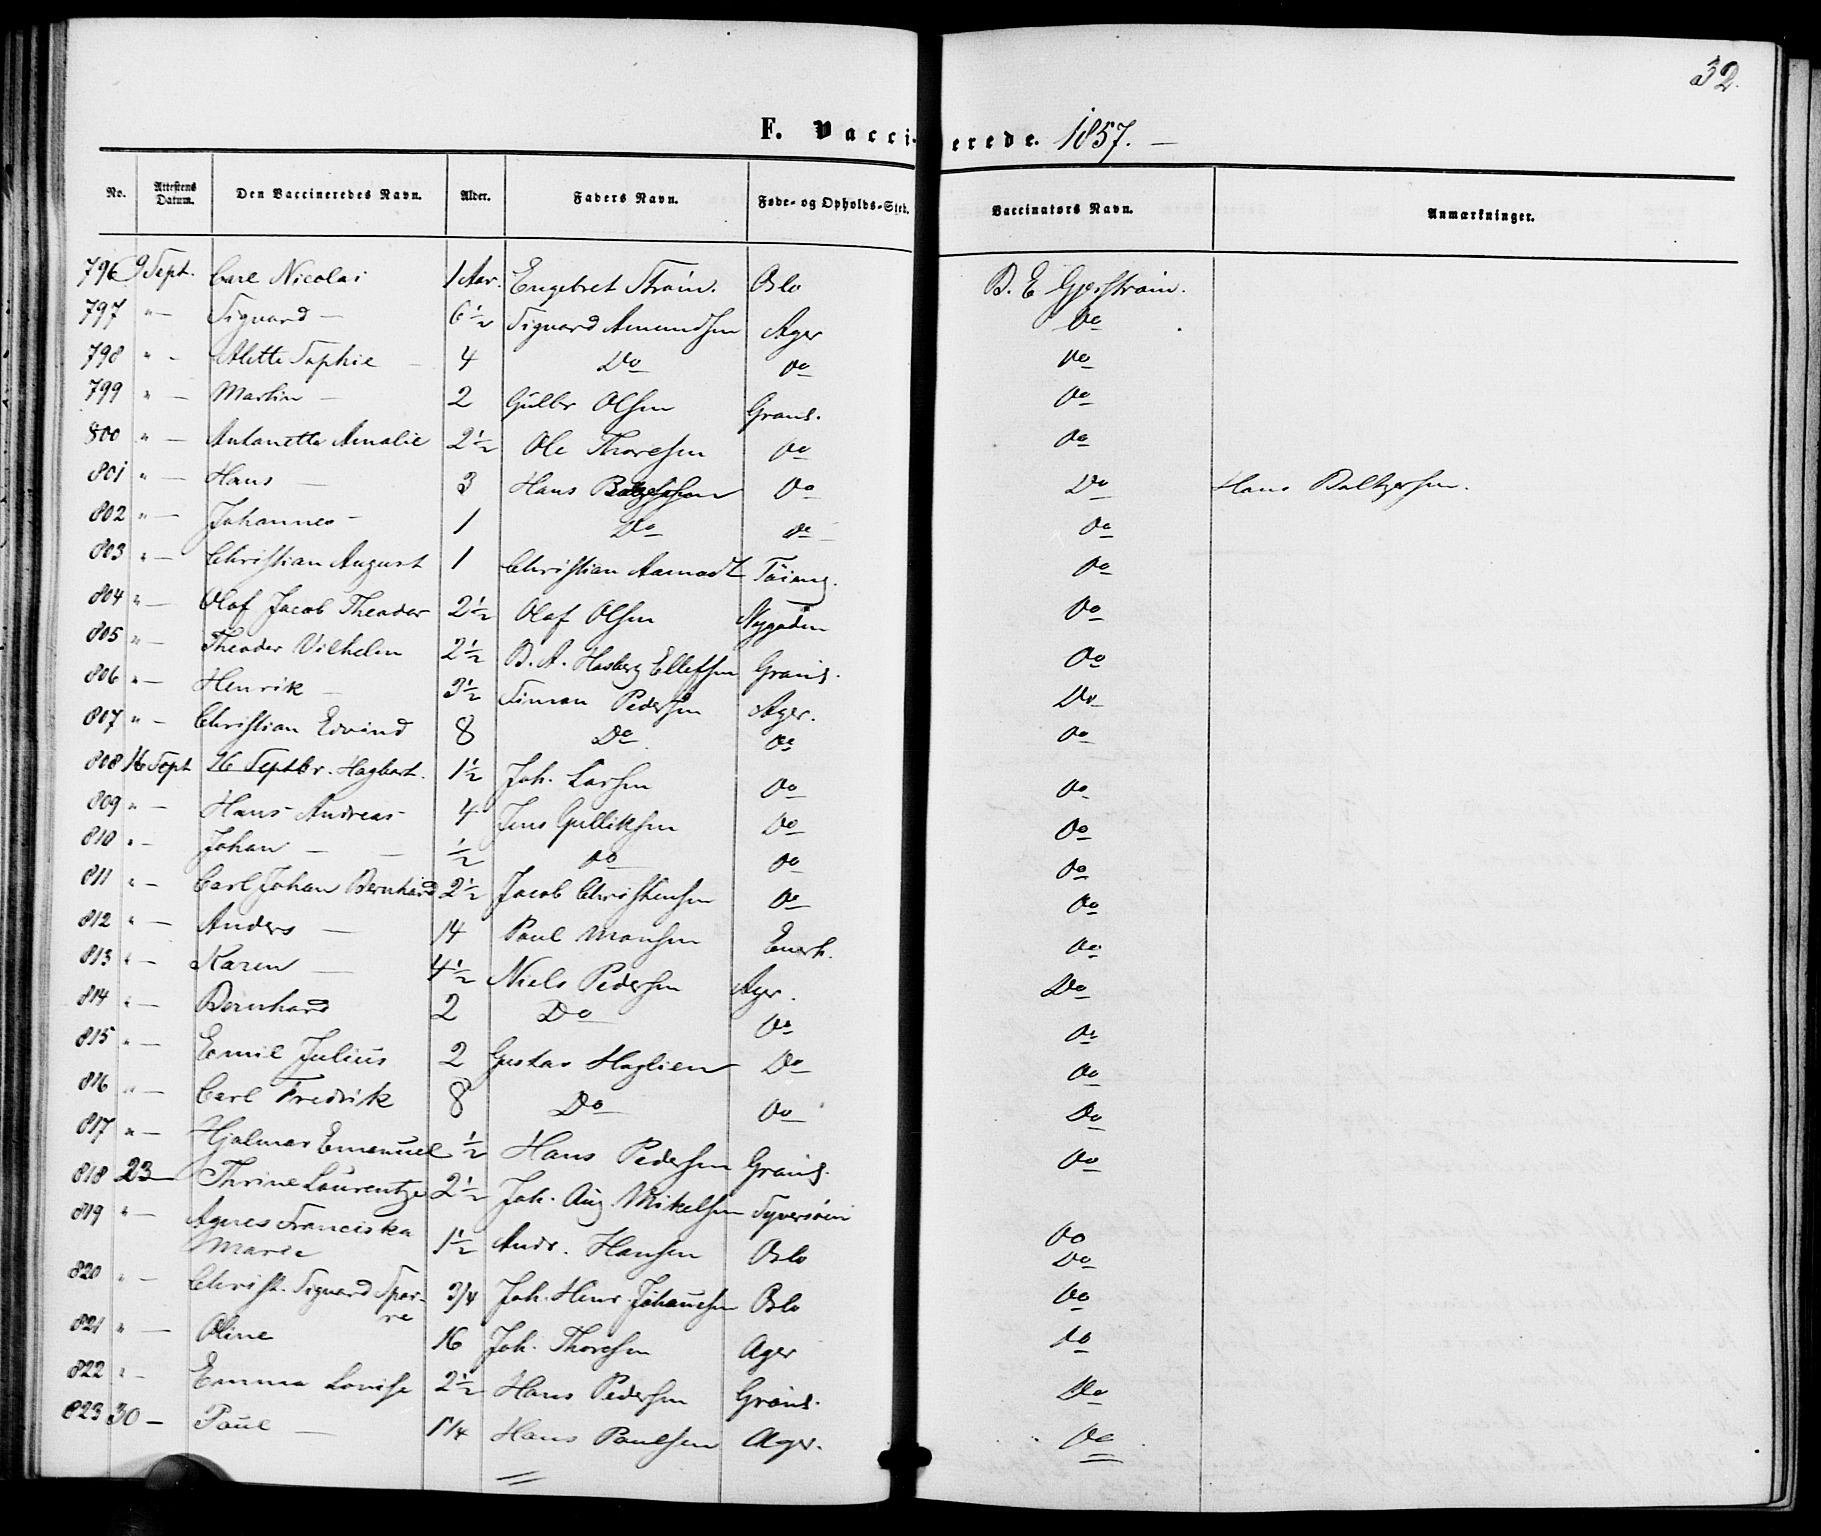 32.
F. Vaccinerede. 1857. —
No. Attestens Datum. Den Vaccineredes Navn. Alder. Faders Navn. Føde- og Opholds-Sted. Vaccinators Navn. Anmærkninger.
796 9 Sept. Carl Nicolai 1 Aar. Engebret Strøm. Oslo B. E.
797 " — Sigvard — 6 1/2 Sigvard Amundsen Ager Do
798 " - Alette Sophie — 4 Do Do Do
799 " — Martin — 2 Gulbr Olsen Grønl. Do
800 " — Antonette Amalie 2 1/2 Ole Thoresen Do Do
801 " — Hans — 3 Hans Do Do Hans Baltzersen.
802 " — Johannes - 1 Do Do — Do
803 " — Christian August 1 Christian Aamodt Tøien. Do
804 " — Olaf Jacob Theodor 2 1/2 Olaf Olsen Nygaden Do
805 " — Theodor Vilhelm 2 1/2 B. A. Hasberg Ellefsen Grønl. Do
806 " — Henrik — 3 1/2 Simon Pedersen Ager. Do
807 " — Christian Edvind 8 Do Do Do
808 16 Sept 16 Septbr. Hagbart. 1 1/2 Joh. Larsen Do Do
809 " — Hans Andreas - 4 Jens Gulliksen Do Do
810 " - Johan — — 1/2 Do Do Do
811 " — Carl Johan Bernhard 2 1/2 Jacob Christensen Do Do
812 " — Anders — 14 Paul Monsen Enerh. Do
813 " — Karen — 4 1/2 Niels Pedersen Ager. Do
814 " — Bernhard 2 Do Do Do
815 " — Emil Julius 2 Gustav Haglien Do Do
816 " — Carl Fredrik 8 Do Do Do
817 " — Hjalmar Emanuel 1/2 Hans Pedersen Grønl. Do
818 23 — Thrine Laurentze 2 1/2 Joh. Aug. Mikelsen Do
819 " — Agnes Franciska
Marie 1 1/2 Andr. Hansen Oslo Do
820 " — Christ. Sigvard Spar-
re 3/4 Joh. Henr Johansen Oslo Do
821 " — Oline 16 Joh. Thoresen Ager Do
822 " - Emma Lovise 2 1/2 Hans Pedersen Grønl. Do
823 30 — Paul — 1 1/4 Hans Paulsen Ager. Do